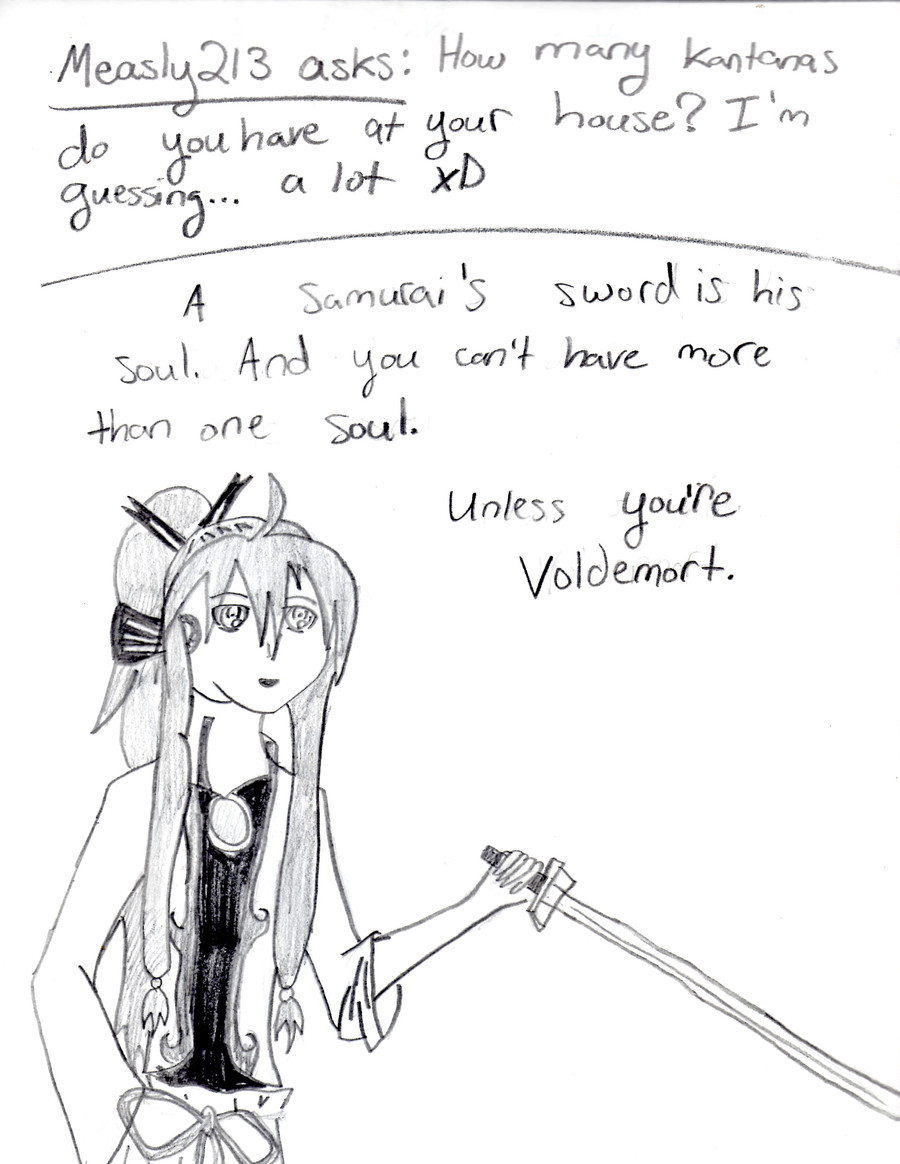 Measly213 asks: How many Kantanas
do you have at your house? I'm
guessing... a lot xD
A Samurai's sword is his
soul. And you can't have more
than one soul.
Unless you're
Voldemort.